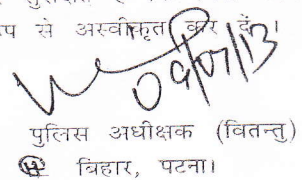 प से अस्वीकृत कर दें।
09/07/13
पुलिस अधीक्षक (वितन्तु)
बिहार, पटना।